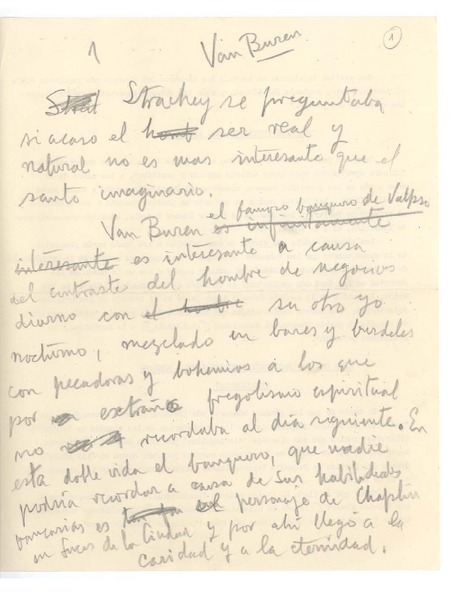 1 Van Buren 1
Strachey se preguntaba
si acaso el homb ser real y
natural no es mas interesante que el
santo imaginario.
el famoso banquero de Valpso
Van Buren es infinitamente
interesante es interesante a causa
del contraste del hombre de negocios
diurno con el hombre su otro yo
nocturno, mezclado en bares y burdeles
con pecadoras y bohemios a los que
por extraño fregolismo espiritual
no recordaba al día siguiente. En
esta doble vida el banquero, que nadie
podría recordar a causa de sus habilidades
bancarias es el personaje de Chaplin
en Luces de la Ciudad y por ahí llegó a la
caridad y a la eternidad.